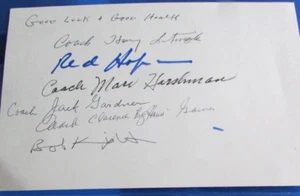 Good Luck & Good Health
Coach Henry
Red
Coach Marv Harshman
Coach Jack Gardner
Coach Clarence Gaines
Bob Knight